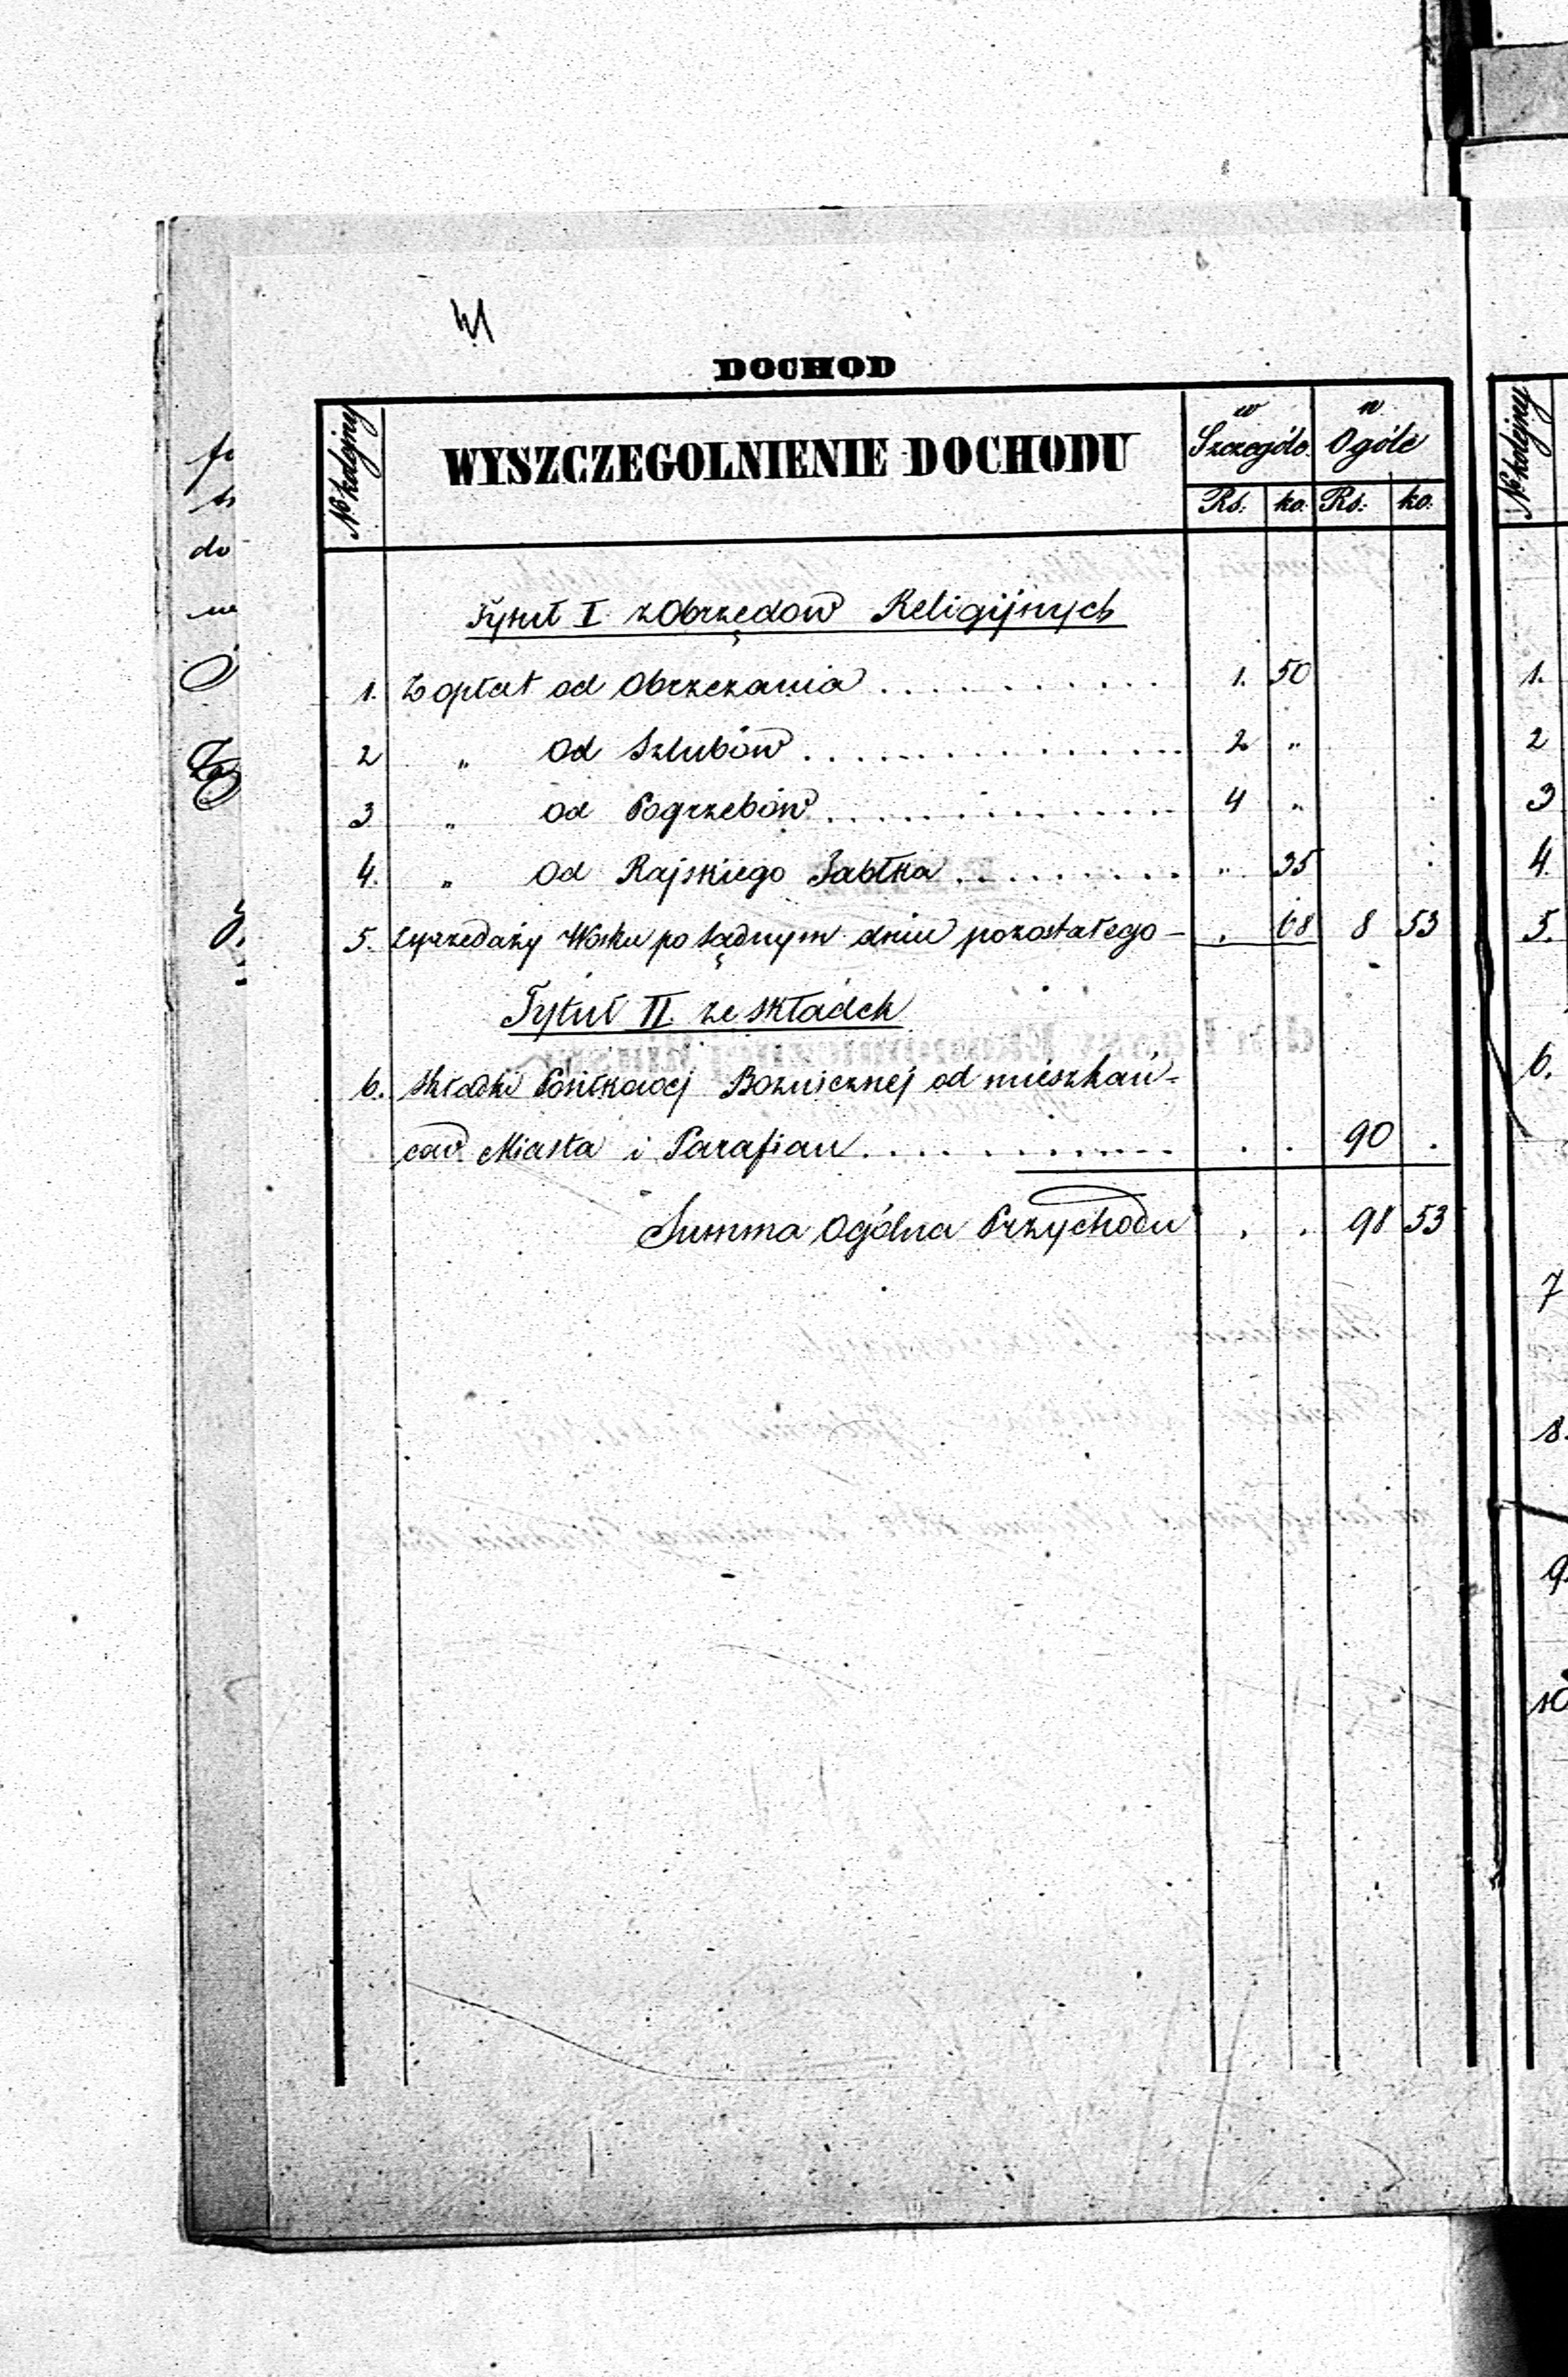 41
DOCHOD
№ kolejny WYSZCZEGOLNIENIE DOCHODU w Szczególe. w Ogóle
Rs: ko: Rs: ko:
Tytuł I z Obrzędow Religijnych
1. Z opłat od Obrzezania . . . . . . . . . . 1. 50
2 „ Od Szlubów . . . . . . . . . . . . . . 2 „
3 „ Od Pogrzebów . . . . . . . . . . . . . 4 „
4. „ Od Rajskiego Jabłka . . . . . . . . . „ 35
5. Zprzedaży Wosku po Sądnym dniu pozostałego – . 68 8 53
Tytuł II. ze składek
6. Składki Bożnicznej od mieszkań=
ców Miasta i Parafian . . . . . . . . . . . . . . 90 .
Summa Ogólna Przychodu . . 98 53
do
№ kolejny
1.
2
3
4.
5.
6.
7
8.
9.
10